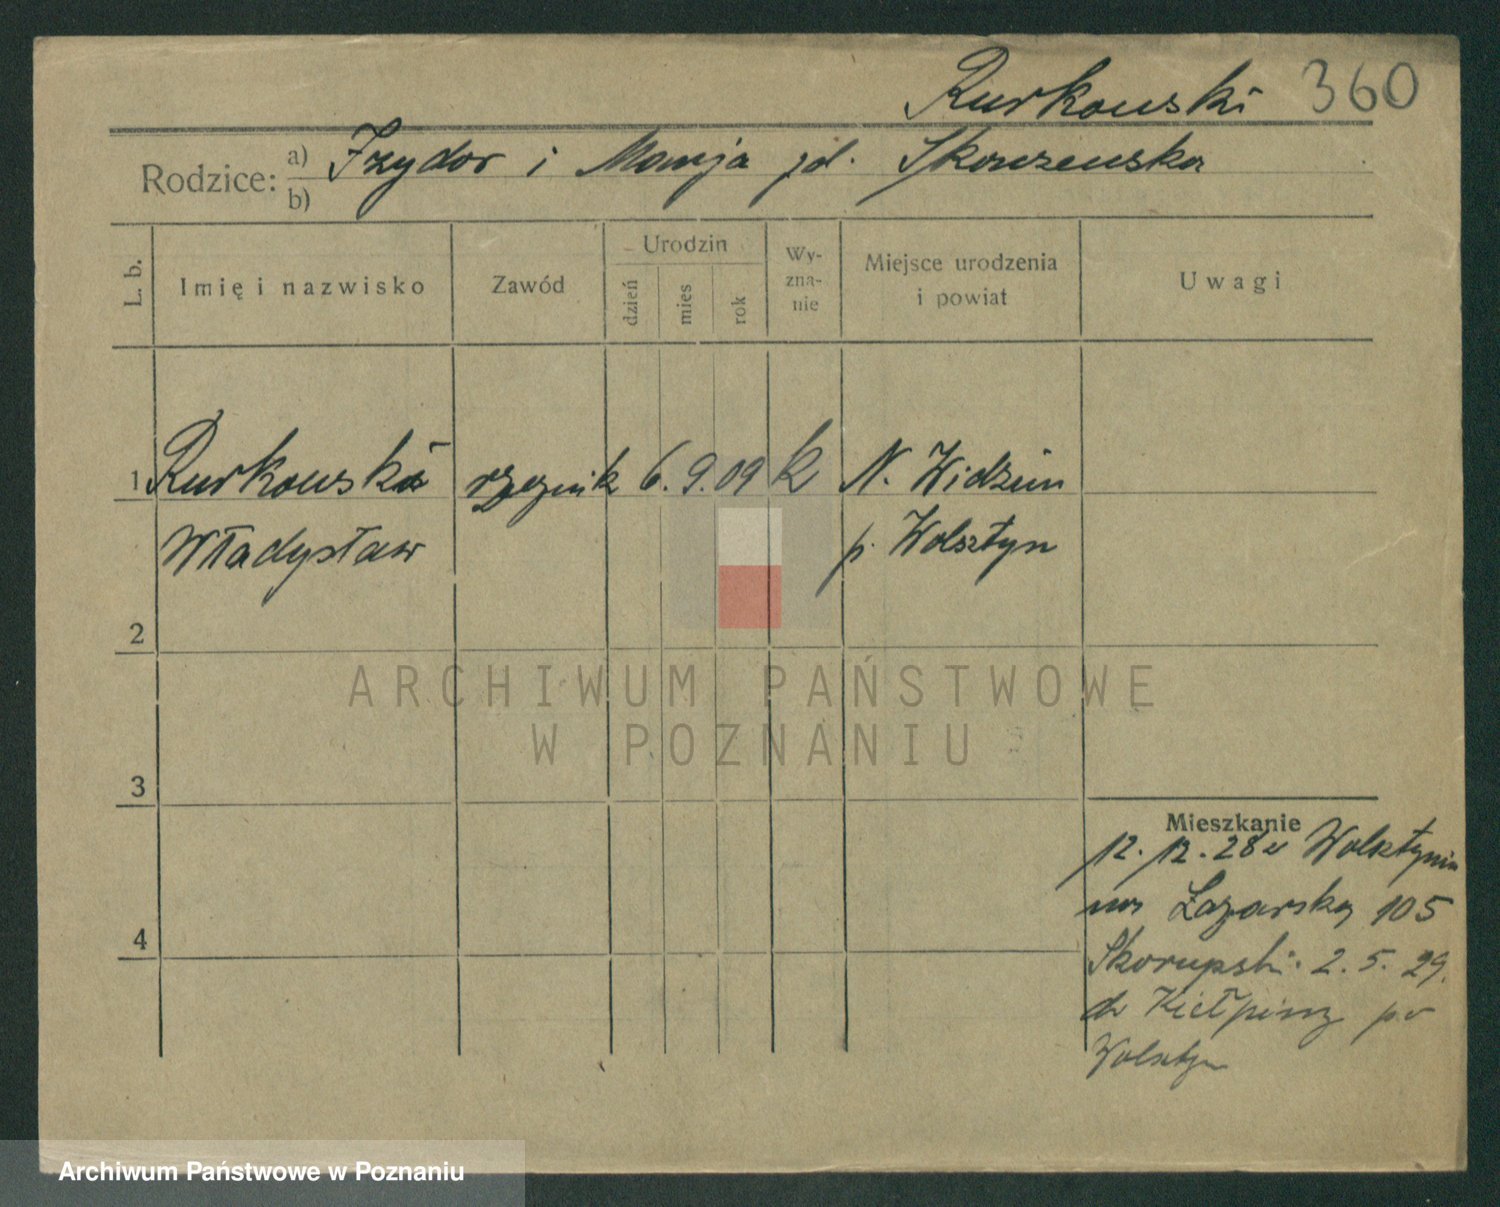 Rurkowski 360
Rodzice: a) Izydor i Marja zd. Skorzewska
b)
L. b.
Imię i nazwisko
Zawód
Urodzin
dzień
mies
rok
Wy-
zna-
nie
Miejsce urodzenia
i powiat
Uwagi
1 Rurkowski rzeźnik 6. 9. 09 k N. Widzim
Władysław p. Wolsztyn
2
ARCHIWUM PAŃSTWOWE
W POZNANIU
3
Mieszkanie
12. 12. 28 z Wolsztyna
na Łazarską 105
4
Skorupski. 2. 5. 29.
do Kiełpiny pow
Wolsztyn
Archiwum Państwowe w Poznaniu